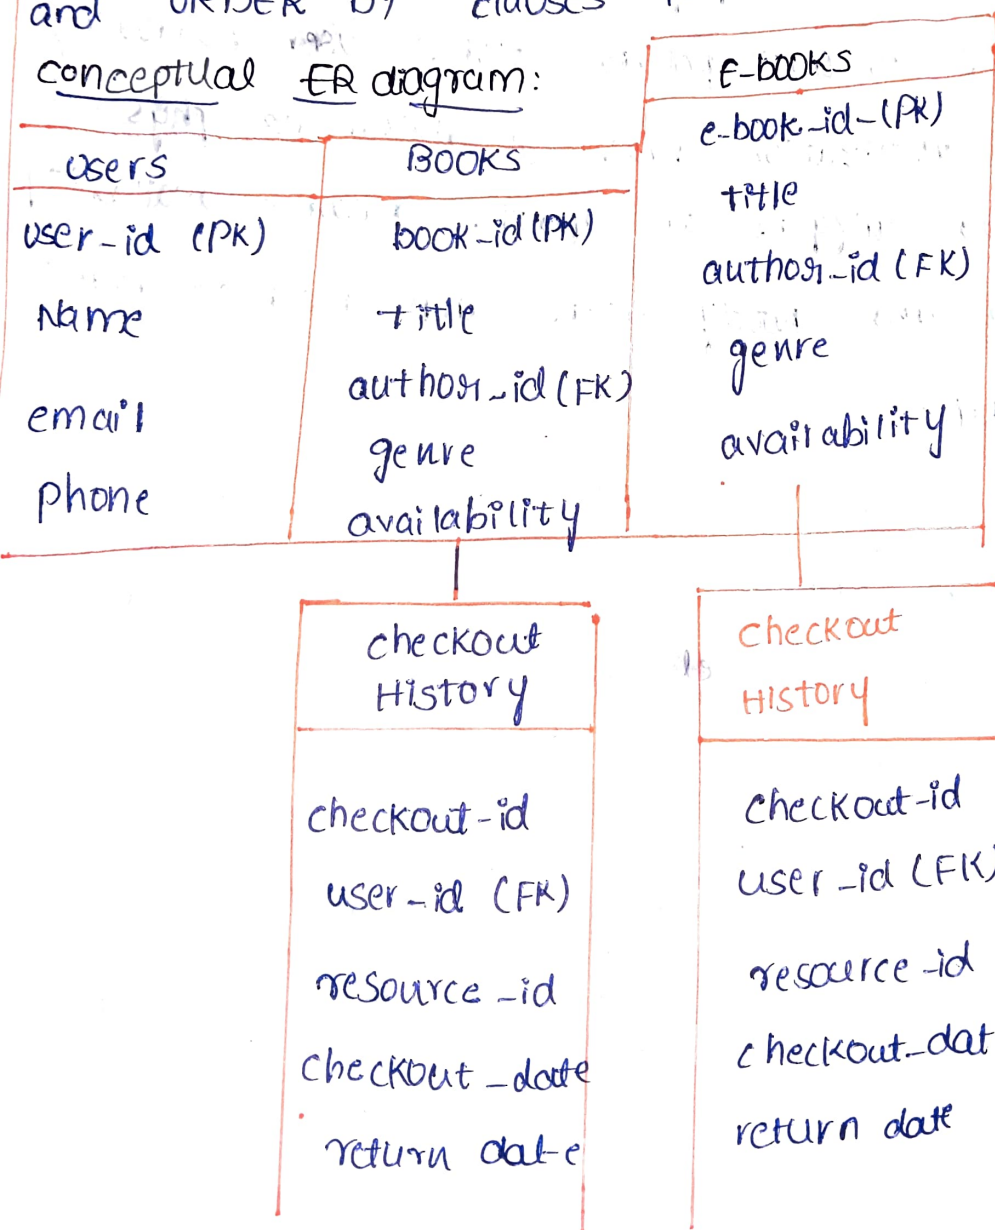 and ORDER by clauses
conceptual ER diagram:
Users
user-id (PK)
Name
email
phone
BOOKS
book-id (PK)
title
author_id (FK)
genre
availability
E-BOOKS
e-book-id-(PK)
title
author_id (FK)
genre
availability
checkout
History
checkout-id
user-id (FK)
resource-id
checkout_date
return date
checkout
History
checkout-id
user-id (FK)
resource-id
checkout_dat
return date